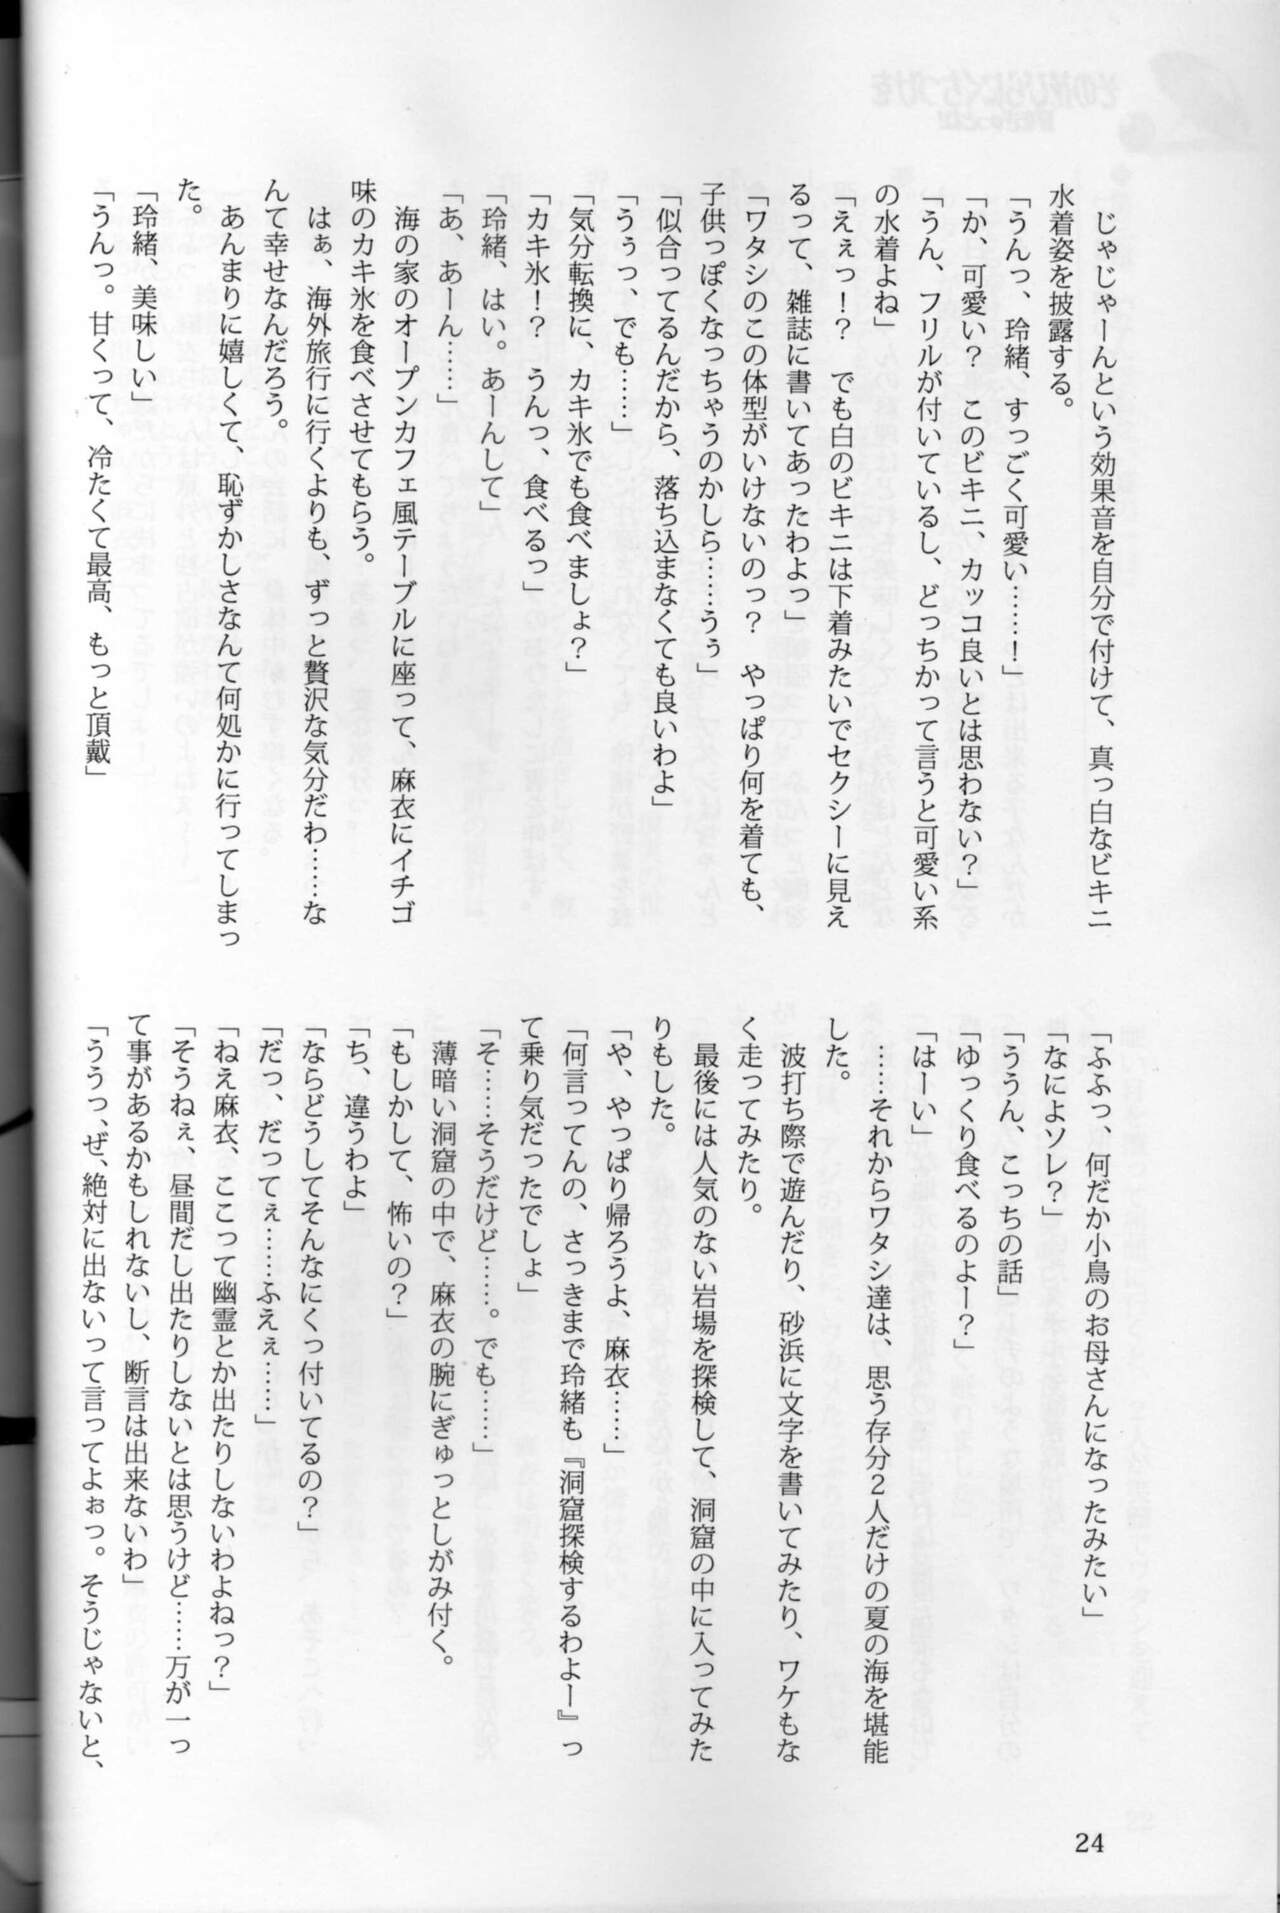 じゃじゃーんという効果音を自分で付けて、真っ白なビキニ
水着姿を披露する。
「うんっ、玲緒、すっごく可愛い……！」
「か、可愛い？　このビキニ、カッコ良いとは思わない？」
「うん、フリルが付いているし、どっちかって言うと可愛い系
の水着よね」
「えぇっ！？　でも白のビキニは下着みたいでセクシーに見え
るって、雑誌に書いてあったわよっ」
「ワタシのこの体型がいけないのっ？　やっぱり何を着ても、
子供っぽくなっちゃうのかしら……うぅ」
「似合ってるんだから、落ち込まなくても良いわよ」
「うぅっ、でも……」
「気分転換に、カキ氷でも食べましょ？」
「カキ氷！？　うんっ、食べるっ」
「玲緒、はい。あーんして」
「あ、あーん……」
海の家のオープンカフェ風テーブルに座って、麻衣にイチゴ
味のカキ氷を食べさせてもらう。
はぁ、海外旅行に行くよりも、ずっと贅沢な気分だわ……な
んて幸せなんだろう。
あんまりに嬉しくて、恥ずかしさなんて何処かに行ってしまっ
た。
「玲緒、美味しい」
「うんっ。甘くって、冷たくて最高、もっと頂戴」
「ふふっ、何だか小鳥のお母さんになったみたい」
「なによソレ？」
「ううん、こっちの話」
「ゆっくり食べるのよー？」
「はーい」
……それからワタシ達は、思う存分２人だけの夏の海を堪能
した。
波打ち際で遊んだり、砂浜に文字を書いてみたり、ワケもな
く走ってみたり。
最後には人気のない岩場を探検して、洞窟の中に入ってみた
りもした。
「や、やっぱり帰ろうよ、麻衣……」
「何言ってんの、さっきまで玲緒も『洞窟探検するわよー』っ
て乗り気だったでしょ」
「そ……そうだけど……。でも……」
薄暗い洞窟の中で、麻衣の腕にぎゅっとしがみ付く。
「もしかして、怖いの？」
「ち、違うわよ」
「ならどうしてそんなにくっ付いてるの？」
「だっ、だってぇ……ふえぇ……」
「ねえ麻衣、ここって幽霊とか出たりしないわよねっ？」
「そうねぇ、昼間だし出たりしないとは思うけど……万が一っ
て事があるかもしれないし、断言は出来ないわ」
「ううっ、ぜ、絶対に出ないって言ってよぉっ。そうじゃないと、
24